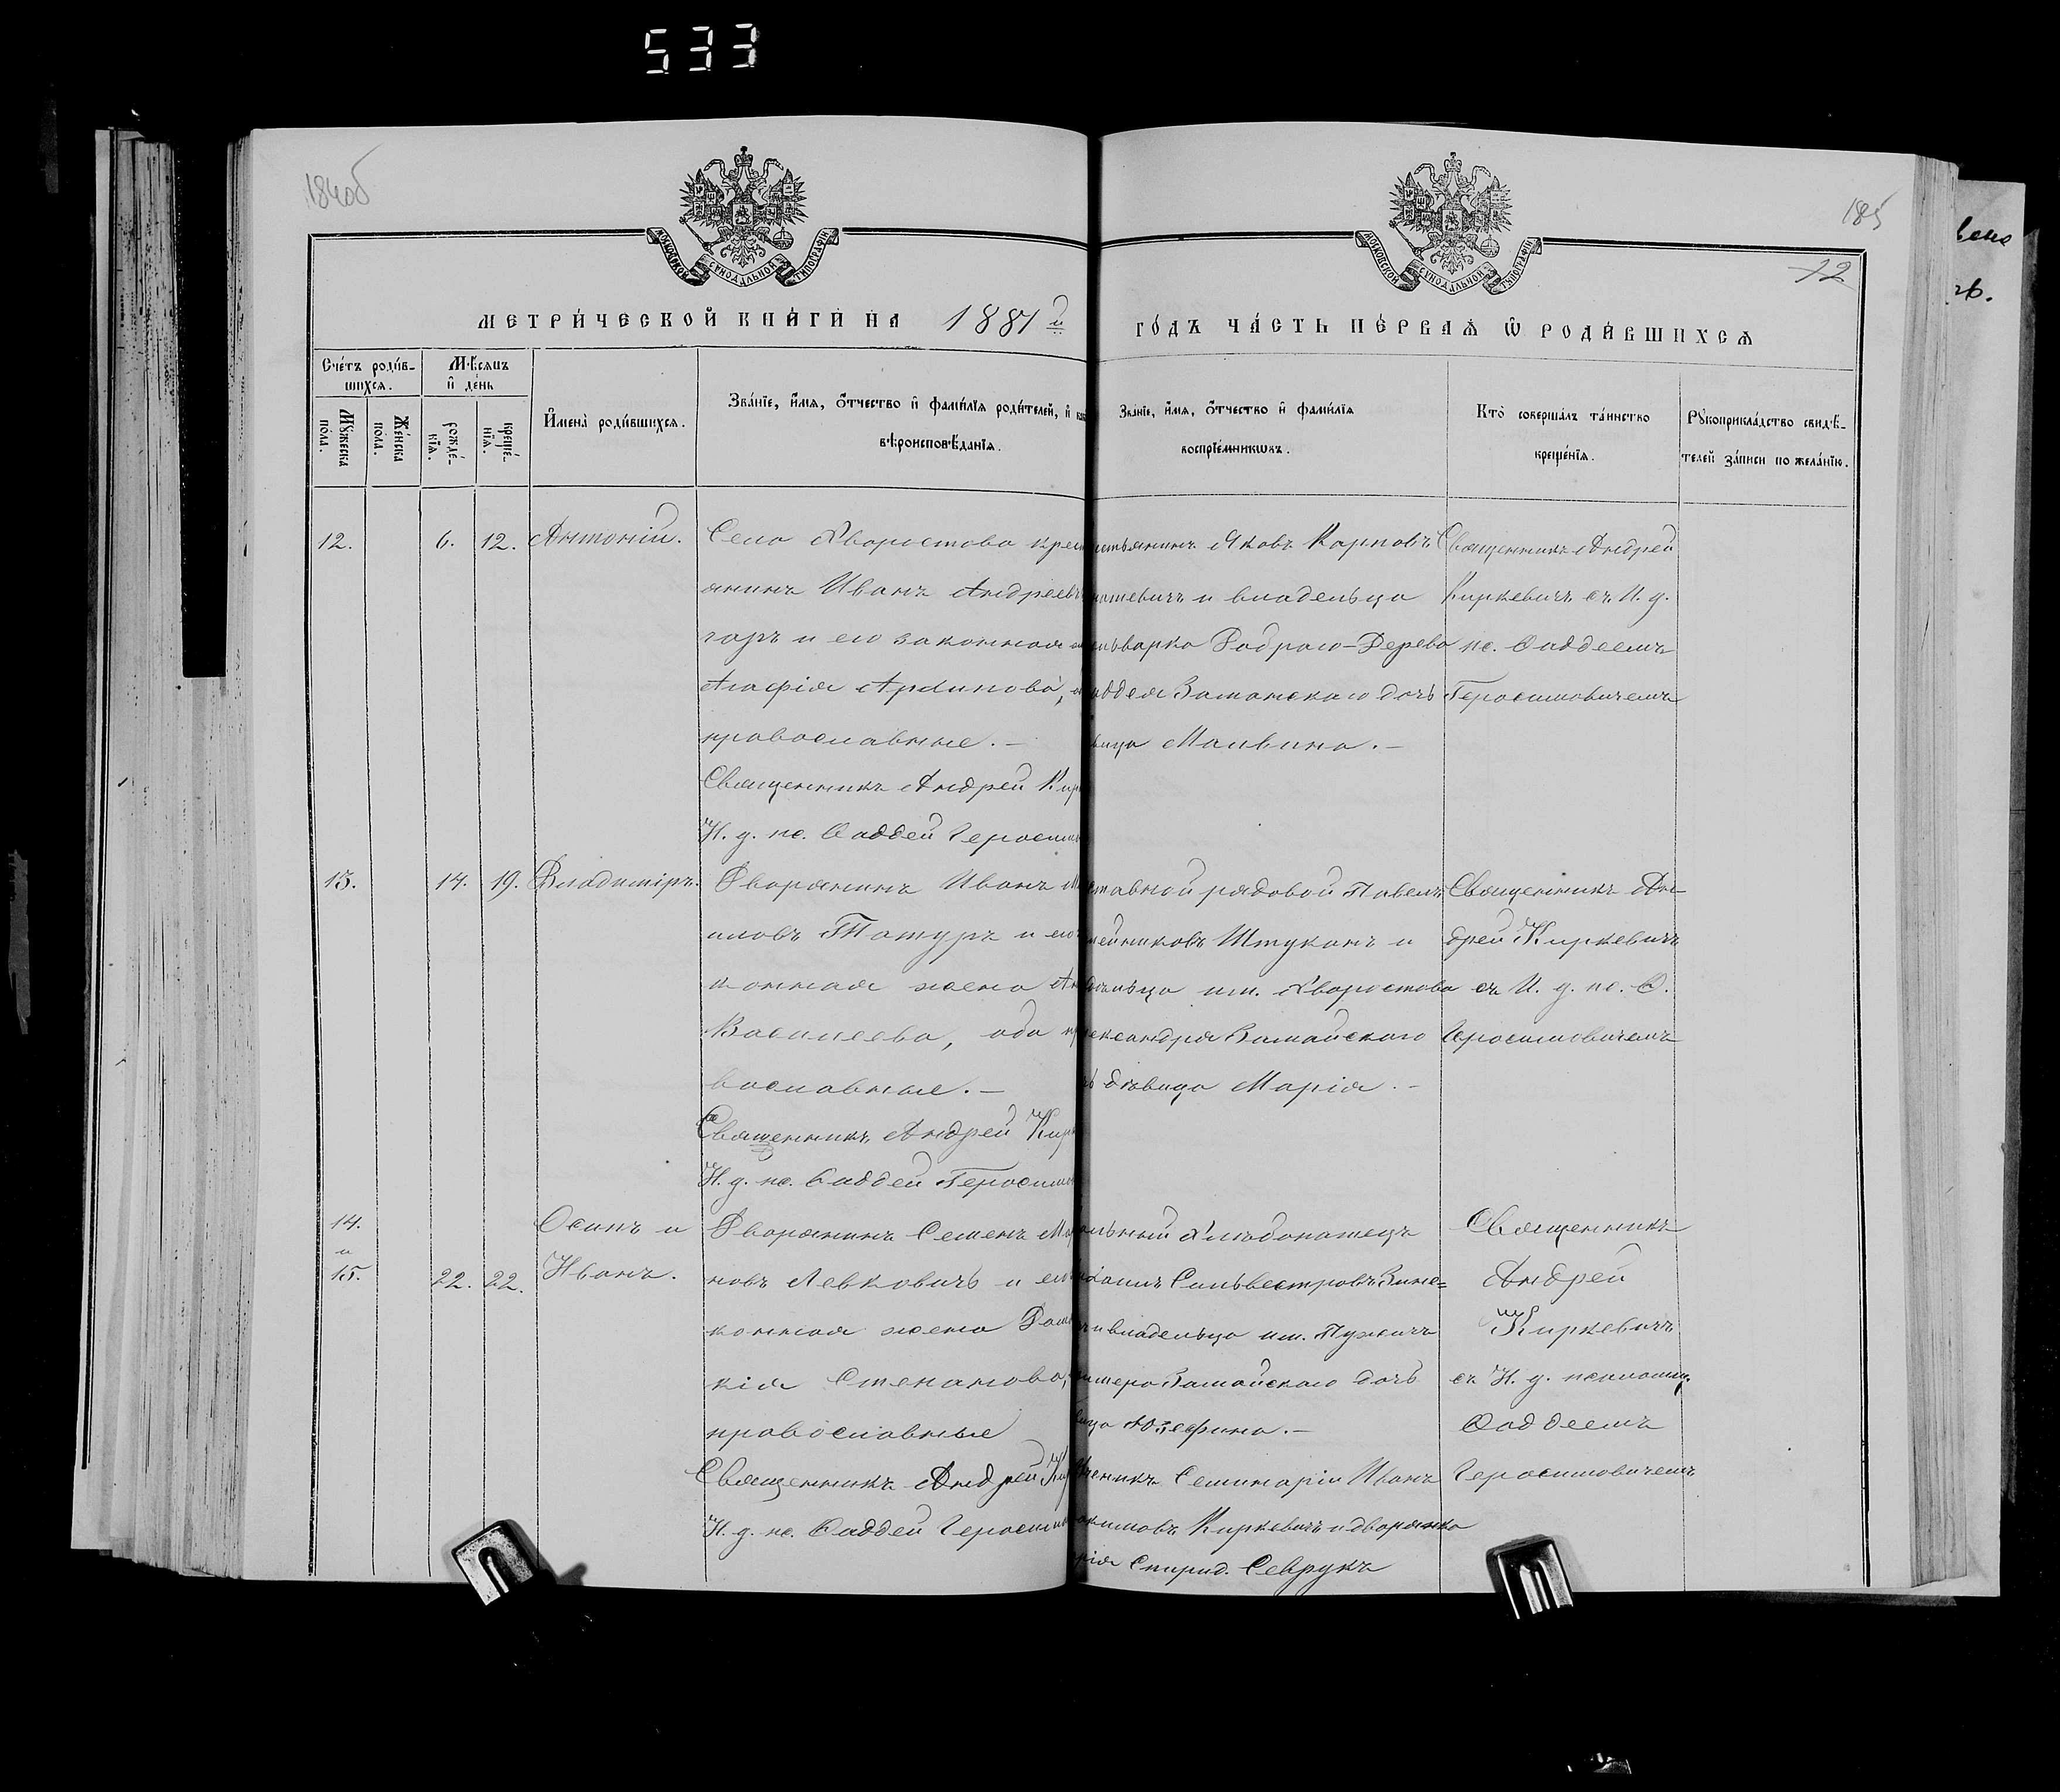 533
184об
185
12
МОСКОВСКОЙ СѴНОДАЛЬНОЙ ТИПОГРАФІИ
МОСКОВСКОЙ СѴНОДАЛЬНОЙ ТИПОГРАФІИ
МЕТРИ́ЧЕСКОЙ КНИ́ГИ НА 1881й
ГО́ДЪ ЧА́СТЬ ПЕ́РВАЯ Ѿ РОДИ́ВШИХСЯ
Сче́тъ роди́в-
шихся.
Мꙋ́жеска по́ла.
Же́нска по́ла.
Мѣ́сяцъ
и҆ де́нь
рожде́-
нїя.
креще́-
нїя.
И҆мена̀ роди́вшихся.
Зва́нїе, и҆́мя, ѻ҆́тчество и҆ фами́лїя роди́телей, и҆
вѣроисповѣ́данїя.
Зва́нїе, и҆́мя, ѻ҆́тчество и҆ фами́лїя
воспрїе́мникѡвъ.
Кто̀ соверша́лъ та́инство
креще́нїя.
Рꙋкоприкла́дство свидѣ́-
телей за́писи по жела́нїю.
12. 6. 12. Антоній.
Село Хворостово крес
янинъ Иванъ Андреевъ
и его законная
Агафія Архипова,
православные. –
Священникъ Андрей Кир
И. д. пс. Ѳаддей Герасим
стьянинъ Яковъ Карповъ
и владельца
льварка Добраго-Дерева
аддея Заманскаго дочь
вица Мальвина. –
Священникъ Андрей
Киркевичъ съ И. д.
пс. Ѳаддеемъ
Герасимовичемъ
13. 14. 19. Владиміръ.
Дворянинъ Иванъ М
иловъ Татуръ и его
конная жена Ан
Васильева, оба пр
вославные. –
Священникъ Андрей Кирк
И. д. пс. Ѳаддей Герасимо
ставной рядовой Павелъ
Штуканъ и
дельца им. Хворостова
ександра Замайскаго
ь дѣвица Марія. –
Священникъ Ан-
дрей Киркевичъ
съ И. д. пс. Ѳ.
Герасимовичемъ
14.
и
15. 22. 22.
Осипъ и
Иванъ.
Дворянинъ Семенъ Ма
новъ Левковичъ и его
конная жена Дом
кія Степанова,
православные
Священникъ Андрей Кир
И. д. пс. Ѳаддей Герасим
Сильвестровъ Зине=
и владельца им. Пузичъ
Замайскаго дочь
вица Юзефина. –
ченикъ Семинаріи Иванъ
акимовъ Киркевичъ и дворянка
рія Спирид. Севрукъ
Священникъ
Андрей
Киркевичъ
съ И. д. псаломщ.
Ѳаддеемъ
Герасимовичемъ